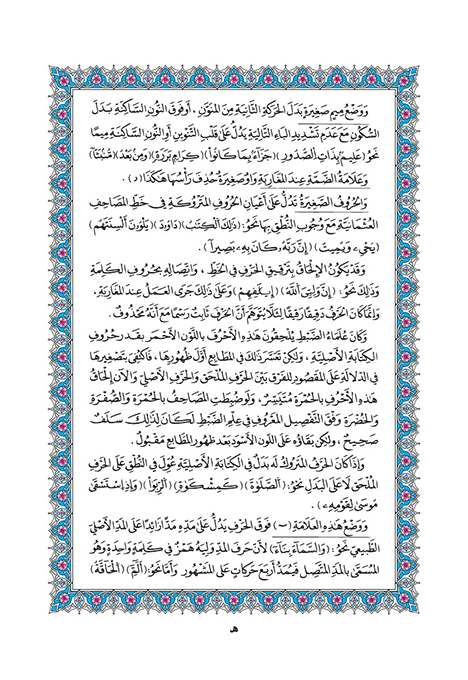 وَوَضْعُ مِيمٍ صَغِيرَةٍ بَدَلَ الحَرَكَةِ الثَّانِيَةِ مِنَ المُنَوَّنِ، أَوفَوقَ النُّونِ السَّاكِنَةِ بَدَلَ
السُّكُونِ مَعَ عَدَمِ تَشْدِيدِ البَاءِ التَّالِيَةِ يَدُلُّ عَلَى قَلْبِ التَّنْوِينِ أَوِالنُّونِ السَّاكِنَةِ مِيمًا
نَحْوُ (عَلِيمٌۢ بِذَاتِ ٱلصُّدُورِ) (جَزَآءَۢ بِمَا كَانُواْ) (كِرَامِۢ بَرَرَةٖ) (وَمِنۢ بَعْدُ) (مُنۢبَثًّا)
وَعَلَامَةُ الضَّمَّةِ عِندَ المَغَارِبَةِ وَاوٌ صَغِيرَةٌ حُذِفَ رَأْسُهَا هَكَذَا (د).
وَالحُرُوفُ الصَّغِيرَةُ تَدُلُّ عَلَى أَعْيَانِ الحُرُوفِ المَتْرُوكَةِ فِي خَطِّ المَصَاحِفِ
العُثْمَانِيَّةِ مَعَ وُجُوبِ النُّطْقِ بِهَا نَحْوُ: (ذَٰلِكَ ٱلْكِتَٰبُ) (دَاوُۥدَ) (يَلْوُۥنَ أَلْسِنَتَهُم)
(يُحْيِۦ وَيُمِيتُ) (إِنَّ رَبَّهُۥ كَانَ بِهِۦ بَصِيرًا).
وَقَدْ يَكُونُ الإِلْحَاقُ بِتَرْقِيقِ الحَرْفِ فِي الخَطِّ، وَاتِّصَالِهِ بِحُرُوفِ الكَلِمَةِ
وَذَلِكَ نَحْوُ: (إِنَّ وَلِـِّۧيَ ٱللَّهُ) (إِۦلَٰفِهِمْ) وَعَلَى ذَلِكَ جَرَى العَمَلُ عِندَ المَغَارِبَةِ،
وَإِنَّمَا كَانَ الحَرْفُ دَقِيقًا رَقِيقًا لِئَلَّا يُتَوَهَّمَ أَنَّ الحَرْفَ ثَابِتٌ رَسْمًا مَعَ أَنَّهُ مَحْذُوفٌ.
وَكَانَ عُلَمَاءُ الضَّبْطِ يُلْحِقُونَ هَذِهِ الأَحْرُفَ بِاللَّونِ الأَحْمَرِ بِقَدرِ حُرُوفِ
الكِتَابَةِ الأَصْلِيَّةِ، وَلَكِنْ تَعَسَّرَ ذَلِكَ فِي المَطَابِعِ أَوَّلَ ظُهُورِهَا، فَاكْتُفِيَ بِتَصْغِيرِهَا
فِي الدَّلَالَةِ عَلَى المَقْصُودِ لِلفَرْقِ بَيْنَ الحَرْفِ المُلْحَقِ وَالحَرْفِ الأَصْلِيِّ وَالآنَ إِلْحَاقُ
هَذِهِ الأَحْرُفِ بِالحُمْرَةِ مُتَيَسِّرٌ، وَلَوضُبِطَتِ المَصَاحِفُ بِالحُمْرَةِ وَالصُّفْرَةِ
وَالخُضْرَةِ وَفْقَ التَّفْصِيلِ المَعْرُوفِ فِي عِلْمِ الضَّبْطِ لَكَانَ لِذَلِكَ سَلَفٌ
صَحِيحٌ، وَلَكِنْ بَقَاؤُهُ عَلَى اللَّونِ الأَسْوَدِ بَعْدَ ظُهُورِ المَطَابِعِ مَقْبُولٌ.
وَإِذَا كَانَ الحَرْفُ المَتْرُوكُ لَهُ بَدَلٌ فِي الكِتَابَةِ الأَصْلِيَّةِ عُوِّلَ فِي النُّطْقِ عَلَى الحَرْفِ
المُلْحَقِ لَا عَلَى البَدَلِ نَحْوُ: (ٱلصَّلَوٰةَ) (كَمِشْكَوٰةٖ) (ٱلرِّبَوٰاْ) (وَإِذِ ٱسْتَسْقَىٰ
مُوسَىٰ لِقَوْمِهِۦ).
وَوَضْعُ هَذِهِ العَلَامَةِ (~) فَوقَ الحَرْفِ يَدُلُّ عَلَى مَدِّهِ مَدًّا زَائِدًا عَلَى المَدِّ الأَصْلِيِّ
الطَّبِيعِيِّ نَحْوُ: (وَٱلسَّمَآءَ بِنَآءٗ) لِأَنَّ حَرفَ المَدِّ وَلِيَهُ هَمْزٌ فِي كَلِمَةٍ وَاحِدَةٍ وَهُوَ
المُسَمَّى بِالمَدِّ المُتَّصِلِ فَيُمَدُّ أَرْبَعَ حَرَكَاتٍ عَلَى المَشْهُورِ. وَأَمَّا نَحْوُ: (الٓمٓ) (ٱلْحَآقَّةُ)
هـ